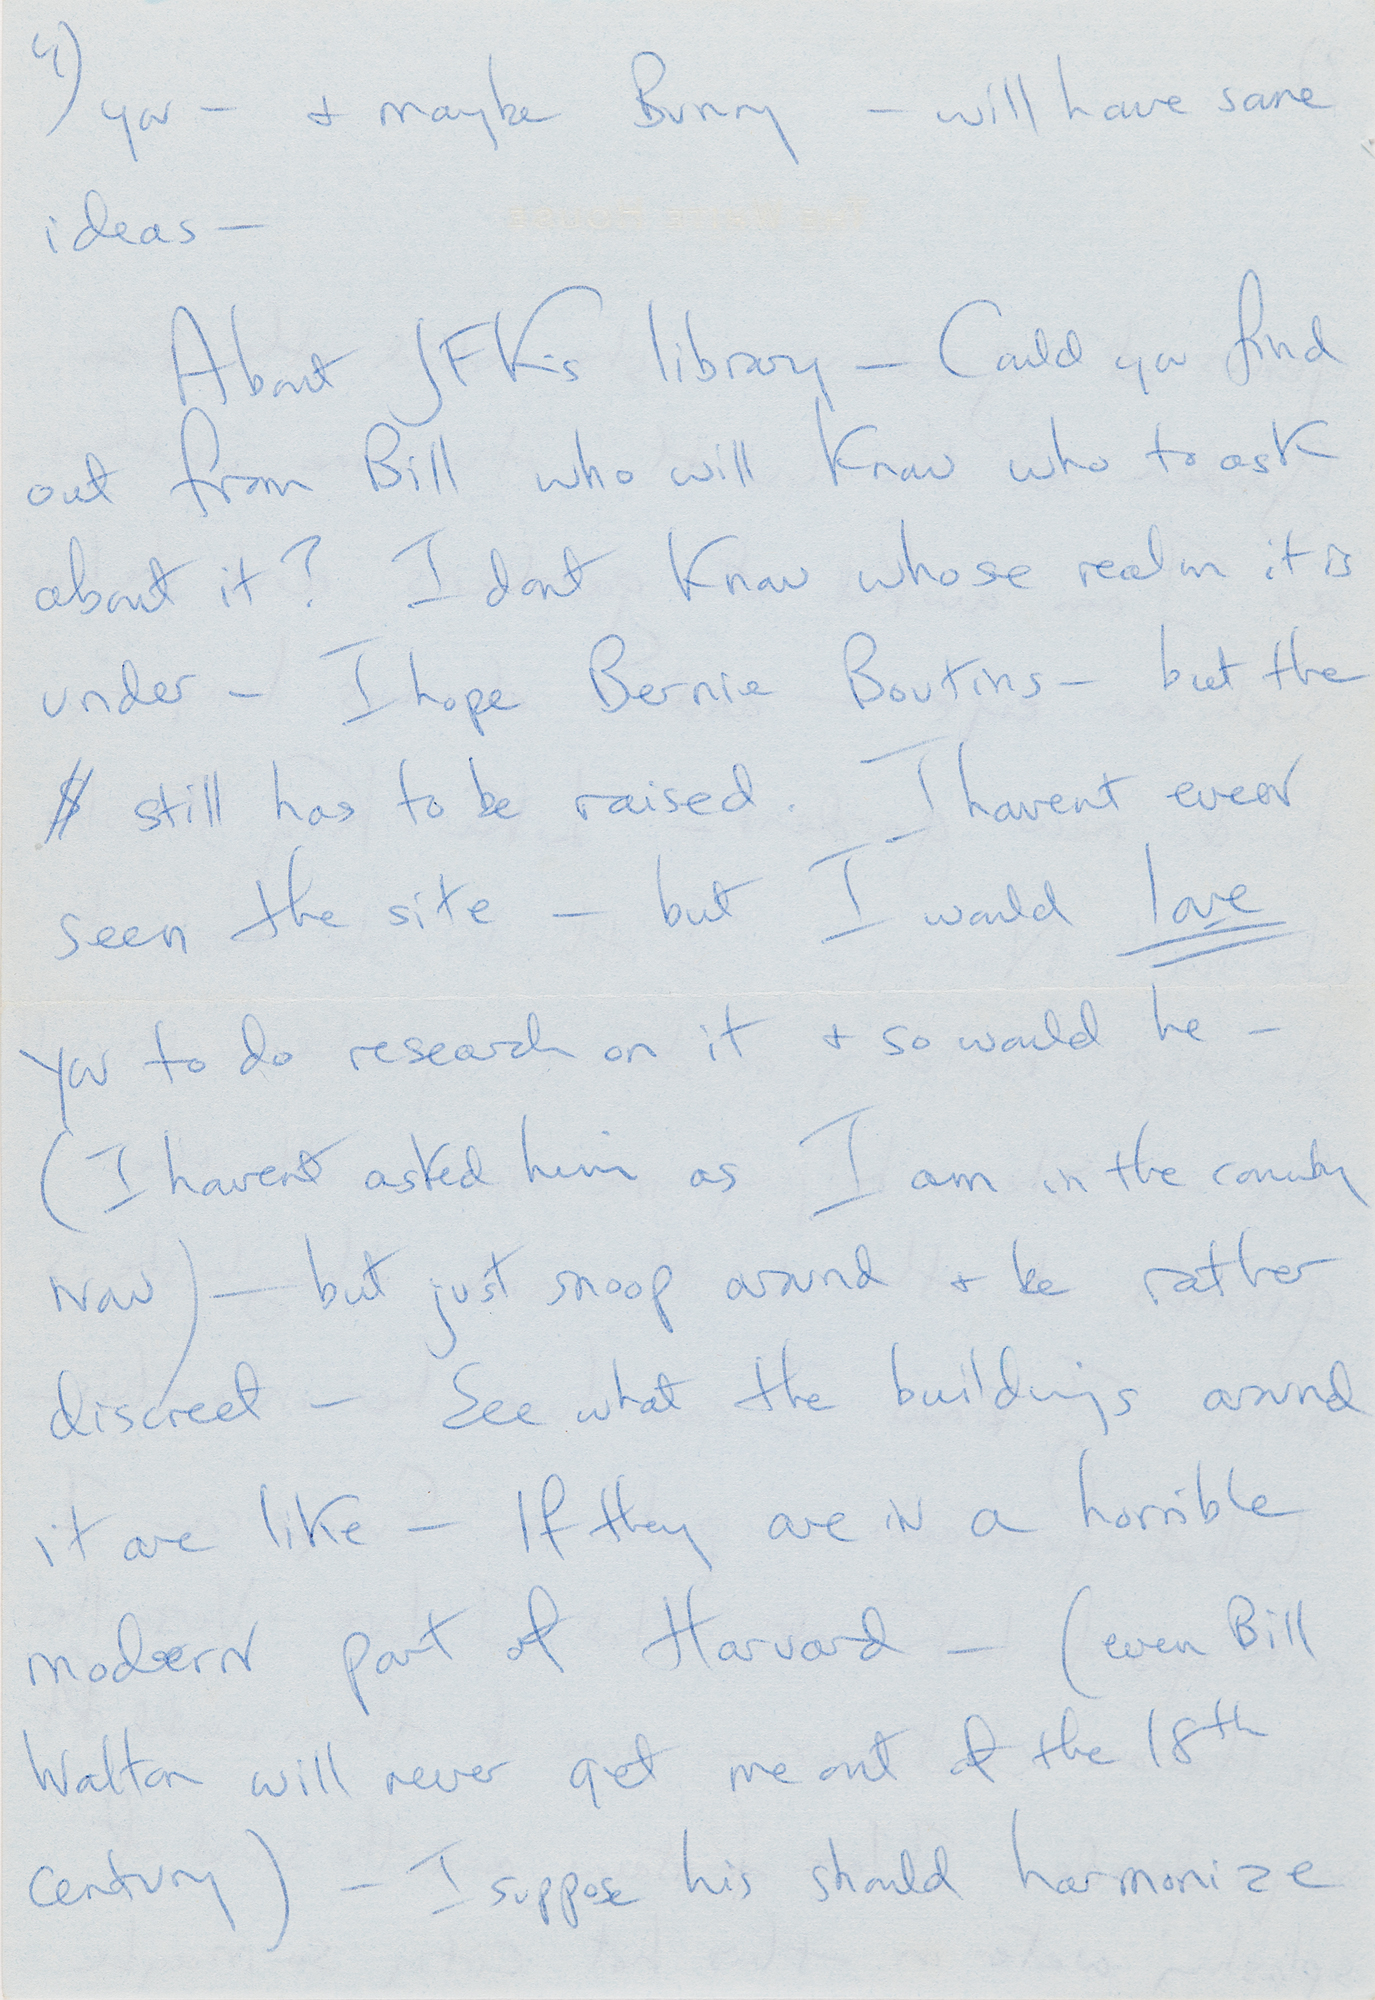 4) you - & maybe Bunny - will have some
ideas -
About JFK's library - Could you find
out from Bill who will know who to ask
about it? I dont know whose realm it is
under - I hope Bernie Boutins - but the
$ still has to be raised. I havent even
seen the site - but I would love
you to do research on it & so would he -
(I havent asked him as I am in the country
now) - but just snoop around & be rather
discreet - See what the buildings around
it are like - If they are in a horrible
modern part of Harvard - (even Bill
Walton will never get me out of the 18th
century) - I suppose his should harmonize